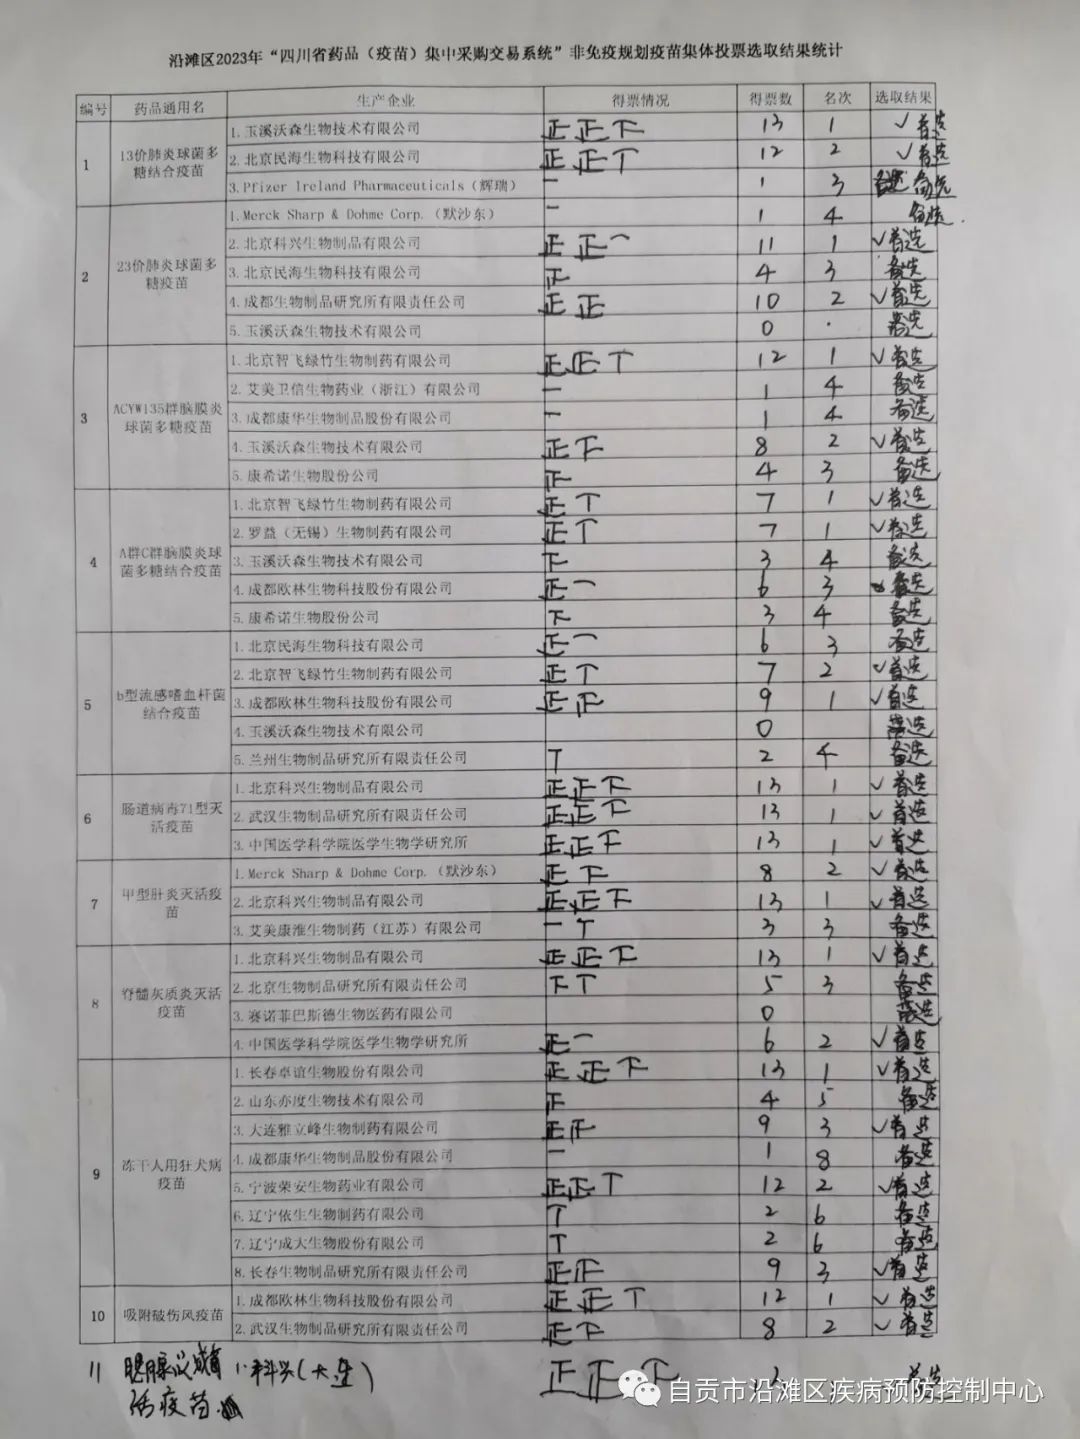 沿滩区2023年“四川省药品（疫苗）集中采购交易系统”非免疫规划疫苗集体投票选取结果统计
编号 药品通用名 生产企业 得票情况 得票数 名次 选取结果
1 13价肺炎球菌多糖结合疫苗
1.玉溪沃森生物技术有限公司 正正下 13 1 ✓首选
2.北京民海生物科技有限公司 正正丅 12 2 ✓首选
3.Pfizer Ireland Pharmaceuticals（辉瑞） 一 1 3 备选
2 23价肺炎球菌多糖疫苗
1.Merck Sharp & Dohme Corp.（默沙东） 一 1 4 备选
2.北京科兴生物制品有限公司 正正一 11 1 ✓首选
3.北京民海生物科技有限公司 正 4 3 备选
4.成都生物制品研究所有限责任公司 正正 10 2 ✓首选
5.玉溪沃森生物技术有限公司 0 · 备选
3 ACYW135群脑膜炎球菌多糖疫苗
1.北京智飞绿竹生物制药有限公司 正正丅 12 1 ✓首选
2.艾美卫信生物药业（浙江）有限公司 一 1 4 备选
3.成都康华生物制品股份有限公司 一 1 4 备选
4.玉溪沃森生物技术有限公司 正下 8 2 ✓首选
5.康希诺生物股份公司 正 4 3 备选
4 A群C群脑膜炎球菌多糖结合疫苗
1.北京智飞绿竹生物制药有限公司 正丅 7 1 ✓首选
2.罗益（无锡）生物制药有限公司 正丅 7 1 ✓首选
3.玉溪沃森生物技术有限公司 下 3 4 备选
4.成都欧林生物科技股份有限公司 正一 6 3 备选
5.康希诺生物股份公司 下 3 4 备选
5 b型流感嗜血杆菌结合疫苗
1.北京民海生物科技有限公司 正一 6 3 备选
2.北京智飞绿竹生物制药有限公司 正丅 7 2 ✓首选
3.成都欧林生物科技股份有限公司 正正 9 1 ✓首选
4.玉溪沃森生物技术有限公司 0 备选
5.兰州生物制品研究所有限责任公司 丅 2 4 备选
6 肠道病毒71型灭活疫苗
1.北京科兴生物制品有限公司 正正下 13 1 ✓首选
2.武汉生物制品研究所有限责任公司 正正下 13 1 ✓首选
3.中国医学科学院医学生物学研究所 正正下 13 1 ✓首选
7 甲型肝炎灭活疫苗
1.Merck Sharp & Dohme Corp.（默沙东） 正下 8 2 ✓首选
2.北京科兴生物制品有限公司 正正下 13 1 ✓首选
3.艾美康淮生物制药（江苏）有限公司 一丅 3 3 备选
8 脊髓灰质炎灭活疫苗
1.北京科兴生物制品有限公司 正正下 13 1 ✓首选
2.北京生物制品研究所有限责任公司 下丅 5 3 备选
3.赛诺菲巴斯德生物医药有限公司 0 备选
4.中国医学科学院医学生物学研究所 正一 6 2 ✓首选
9 冻干人用狂犬病疫苗
1.长春卓谊生物股份有限公司 正正下 13 1 ✓首选
2.山东亦度生物技术有限公司 正 4 5 备选
3.大连雅立峰生物制药有限公司 正正 9 3 ✓首选
4.成都康华生物制品股份有限公司 一 1 8 备选
5.宁波荣安生物药业有限公司 正正丅 12 2 ✓首选
6.辽宁依生生物制药有限公司 丅 2 6 备选
7.辽宁成大生物股份有限公司 丅 2 6 备选
8.长春生物制品研究所有限责任公司 正正 9 3 ✓首选
10 吸附破伤风疫苗
1.成都欧林生物科技股份有限公司 正正丅 12 1 ✓首选
2.武汉生物制品研究所有限责任公司 正下 8 2 ✓首选
11 1.科兴（大连） 正正下 首选
活疫苗
自贡市沿滩区疾病预防控制中心